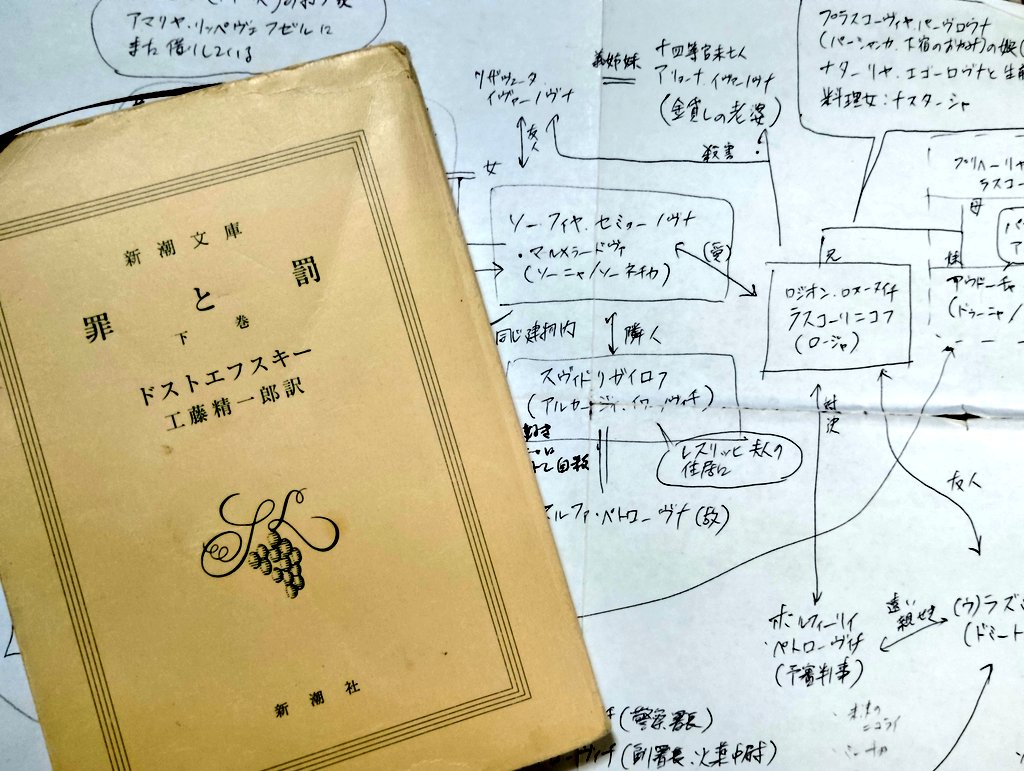 アマリヤ・リッペヴェフゼルに
また借りしている
新潮文庫
罪と罰
下巻
ドストエフスキー
工藤精一郎訳
新潮社
リザヴェータ
イヴァーノヴナ
義姉妹
十四等官未亡人
アリョーナ・イヴァーノヴナ
(金貸しの老婆)
プラスコーヴィヤ・パーヴロヴナ
(パーシェンカ、下宿のおかみ)の娘
ナターリヤ・エゴーロヴナと生前
料理女:ナスターシャ
友人
殺害
女
ソーフィヤ・セミョーノヴナ
・マルメラードヴァ
(ソーニャ/ソーネチカ)
(愛)
プリヘーリヤ
ラスコー
母
兄
妹
アヴドーチャ
(ドゥーニャ/
ロジオン・ロマーヌイチ
ラスコーリニコフ
(ロージャ)
同じ建物内
隣人
スヴィドリガイロフ
(アルカージイ・イワーノヴィチ)
自殺
レスリッヒ夫人の
住居に
ルファ・ペトローヴナ(故)
対決
友人
ポルフィーリイ
・ペトローヴィチ
(予審判事)
遠い
親せき
(ウ)ラズ
(ドミート
(警察署長)
(副署長、火薬中尉)
ニコライ